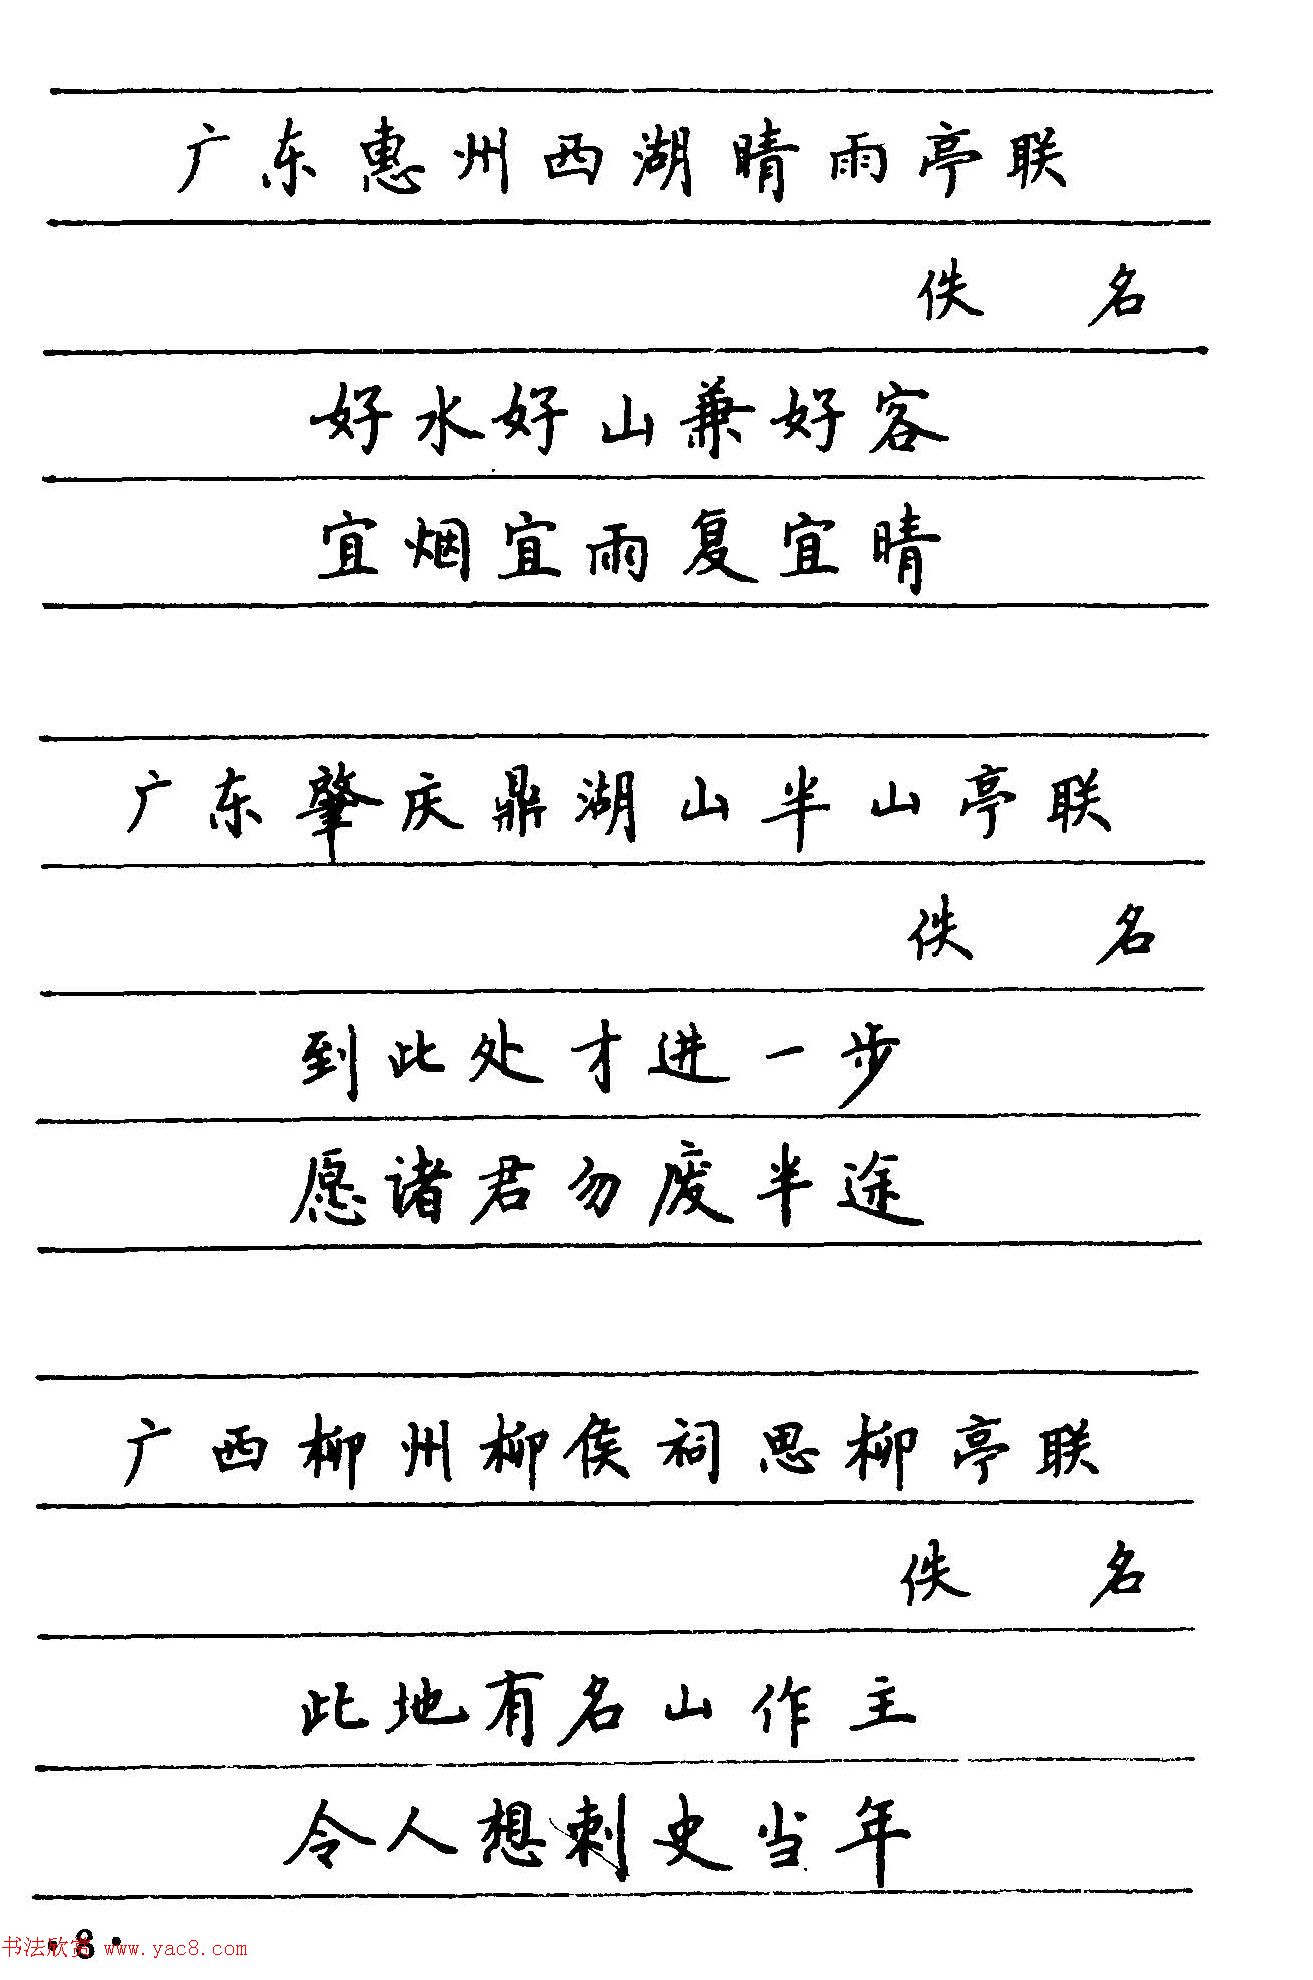 广东惠州西湖晴雨亭联
佚名
好水好山兼好客
宜烟宜雨复宜晴
广东肇庆鼎湖山半山亭联
佚名
到此处才进一步
愿诸君勿废半途
广西柳州柳侯祠思柳亭联
佚名
此地有名山作主
令人想刺史当年
·8·
书法欣赏 www.yac8.com